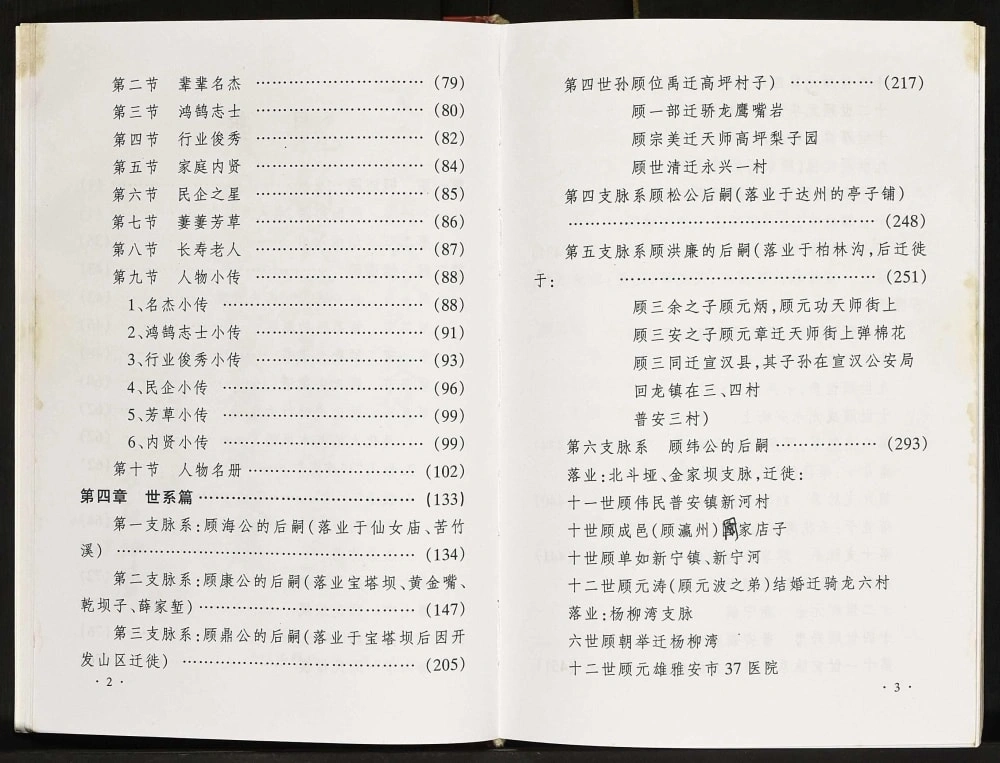 第二节 辈辈名杰 …………………………… (79)
第三节 鸿鹄志士 …………………………… (80)
第四节 行业俊秀 …………………………… (82)
第五节 家庭内贤 …………………………… (84)
第六节 民企之星 …………………………… (85)
第七节 萋萋芳草 …………………………… (86)
第八节 长寿老人 …………………………… (87)
第九节 人物小传 …………………………… (88)
1、名杰小传 ………………………………… (88)
2、鸿鹄志士小传 …………………………… (91)
3、行业俊秀小传 …………………………… (93)
4、民企小传 ………………………………… (96)
5、芳草小传 ………………………………… (99)
6、内贤小传 ………………………………… (99)
第十节 人物名册 …………………………… (102)
第四章 世系篇 ……………………………… (133)
第一支脉系:顾海公的后嗣(落业于仙女庙、苦竹
溪) …………………………………………… (134)
第二支脉系:顾康公的后嗣(落业宝塔坝、黄金嘴、
乾坝子、薛家堑) …………………………… (147)
第三支脉系:顾鼎公的后嗣(落业于宝塔坝后因开
发山区迁徙) ………………………………… (205)
·2·
第四世孙顾位禹迁高坪村子) …………… (217)
顾一部迁骄龙鹰嘴岩
顾宗美迁天师高坪梨子园
顾世清迁永兴一村
第四支脉系顾松公后嗣(落业于达州的亭子铺)
……………………………………………… (248)
第五支脉系顾洪廉的后嗣(落业于柏林沟,后迁徙
于: ……………………………………… (251)
顾三余之子顾元炳,顾元功天师街上
顾三安之子顾元章迁天师街上弹棉花
顾三同迁宣汉县,其子孙在宣汉公安局
回龙镇在三、四村
普安三村)
第六支脉系 顾纬公的后嗣 ……………… (293)
落业:北斗垭、金家坝支脉,迁徙:
十一世顾伟民普安镇新河村
十世顾成邑(顾瀛州)家店子
十世顾单如新宁镇、新宁河
十二世顾元涛(顾元波之弟)结婚迁骑龙六村
落业:杨柳湾支脉
六世顾朝举迁杨柳湾
十二世顾元雄雅安市 37 医院
·3·